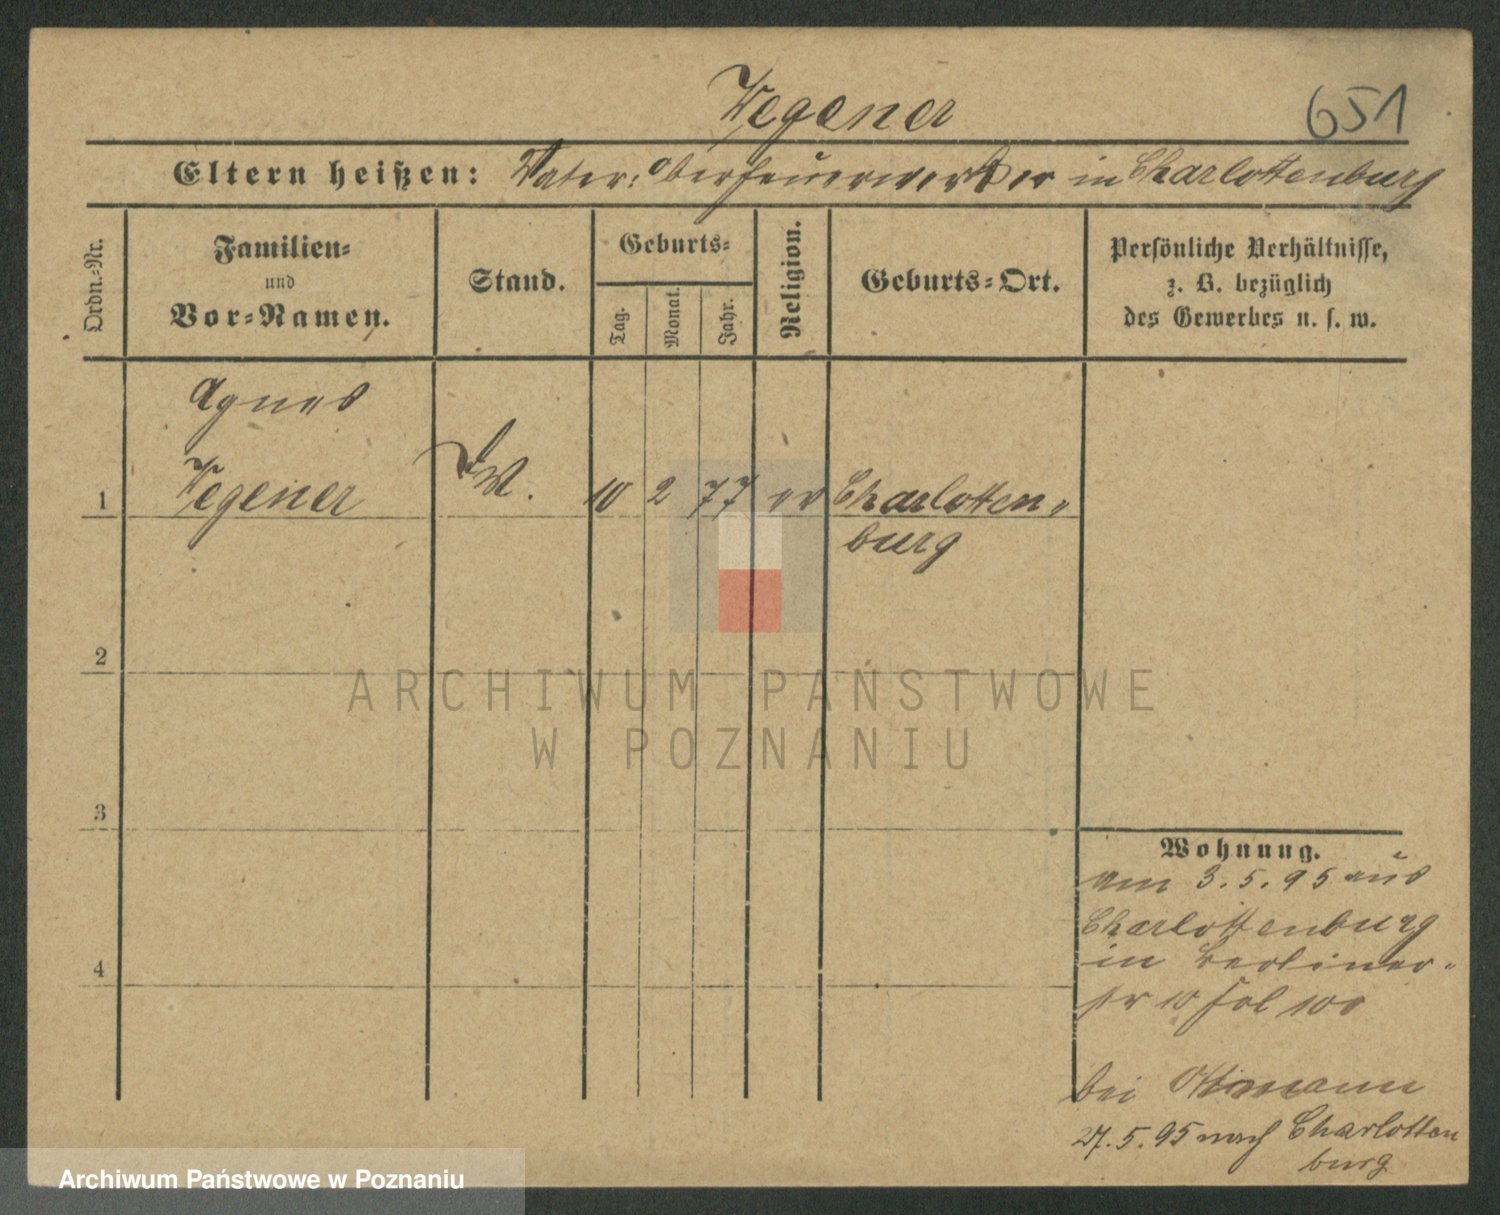 Wegener
651
Eltern heißen: Vater: Oberfeuerwerker in Charlottenburg
Ordn.-Nr.
Familien-
und
Vor-Namen.
Stand.
Geburts-
Tag.
Monat.
Jahr.
Religion.
Geburts-Ort.
Persönliche Verhältnisse,
z. B. bezüglich
des Gewerbes u. s. w.
Agnes
1 Wegener 10 2 77 ev Charlotten-
burg
2
3
4
ARCHIWUM PAŃSTWOWE
W POZNANIU
Wohnung.
am 3.5.95 aus
Charlottenburg
in Berliner-
str 10 fol 100
bei
27.5.95 nach Charlotten
burg
Archiwum Państwowe w Poznaniu